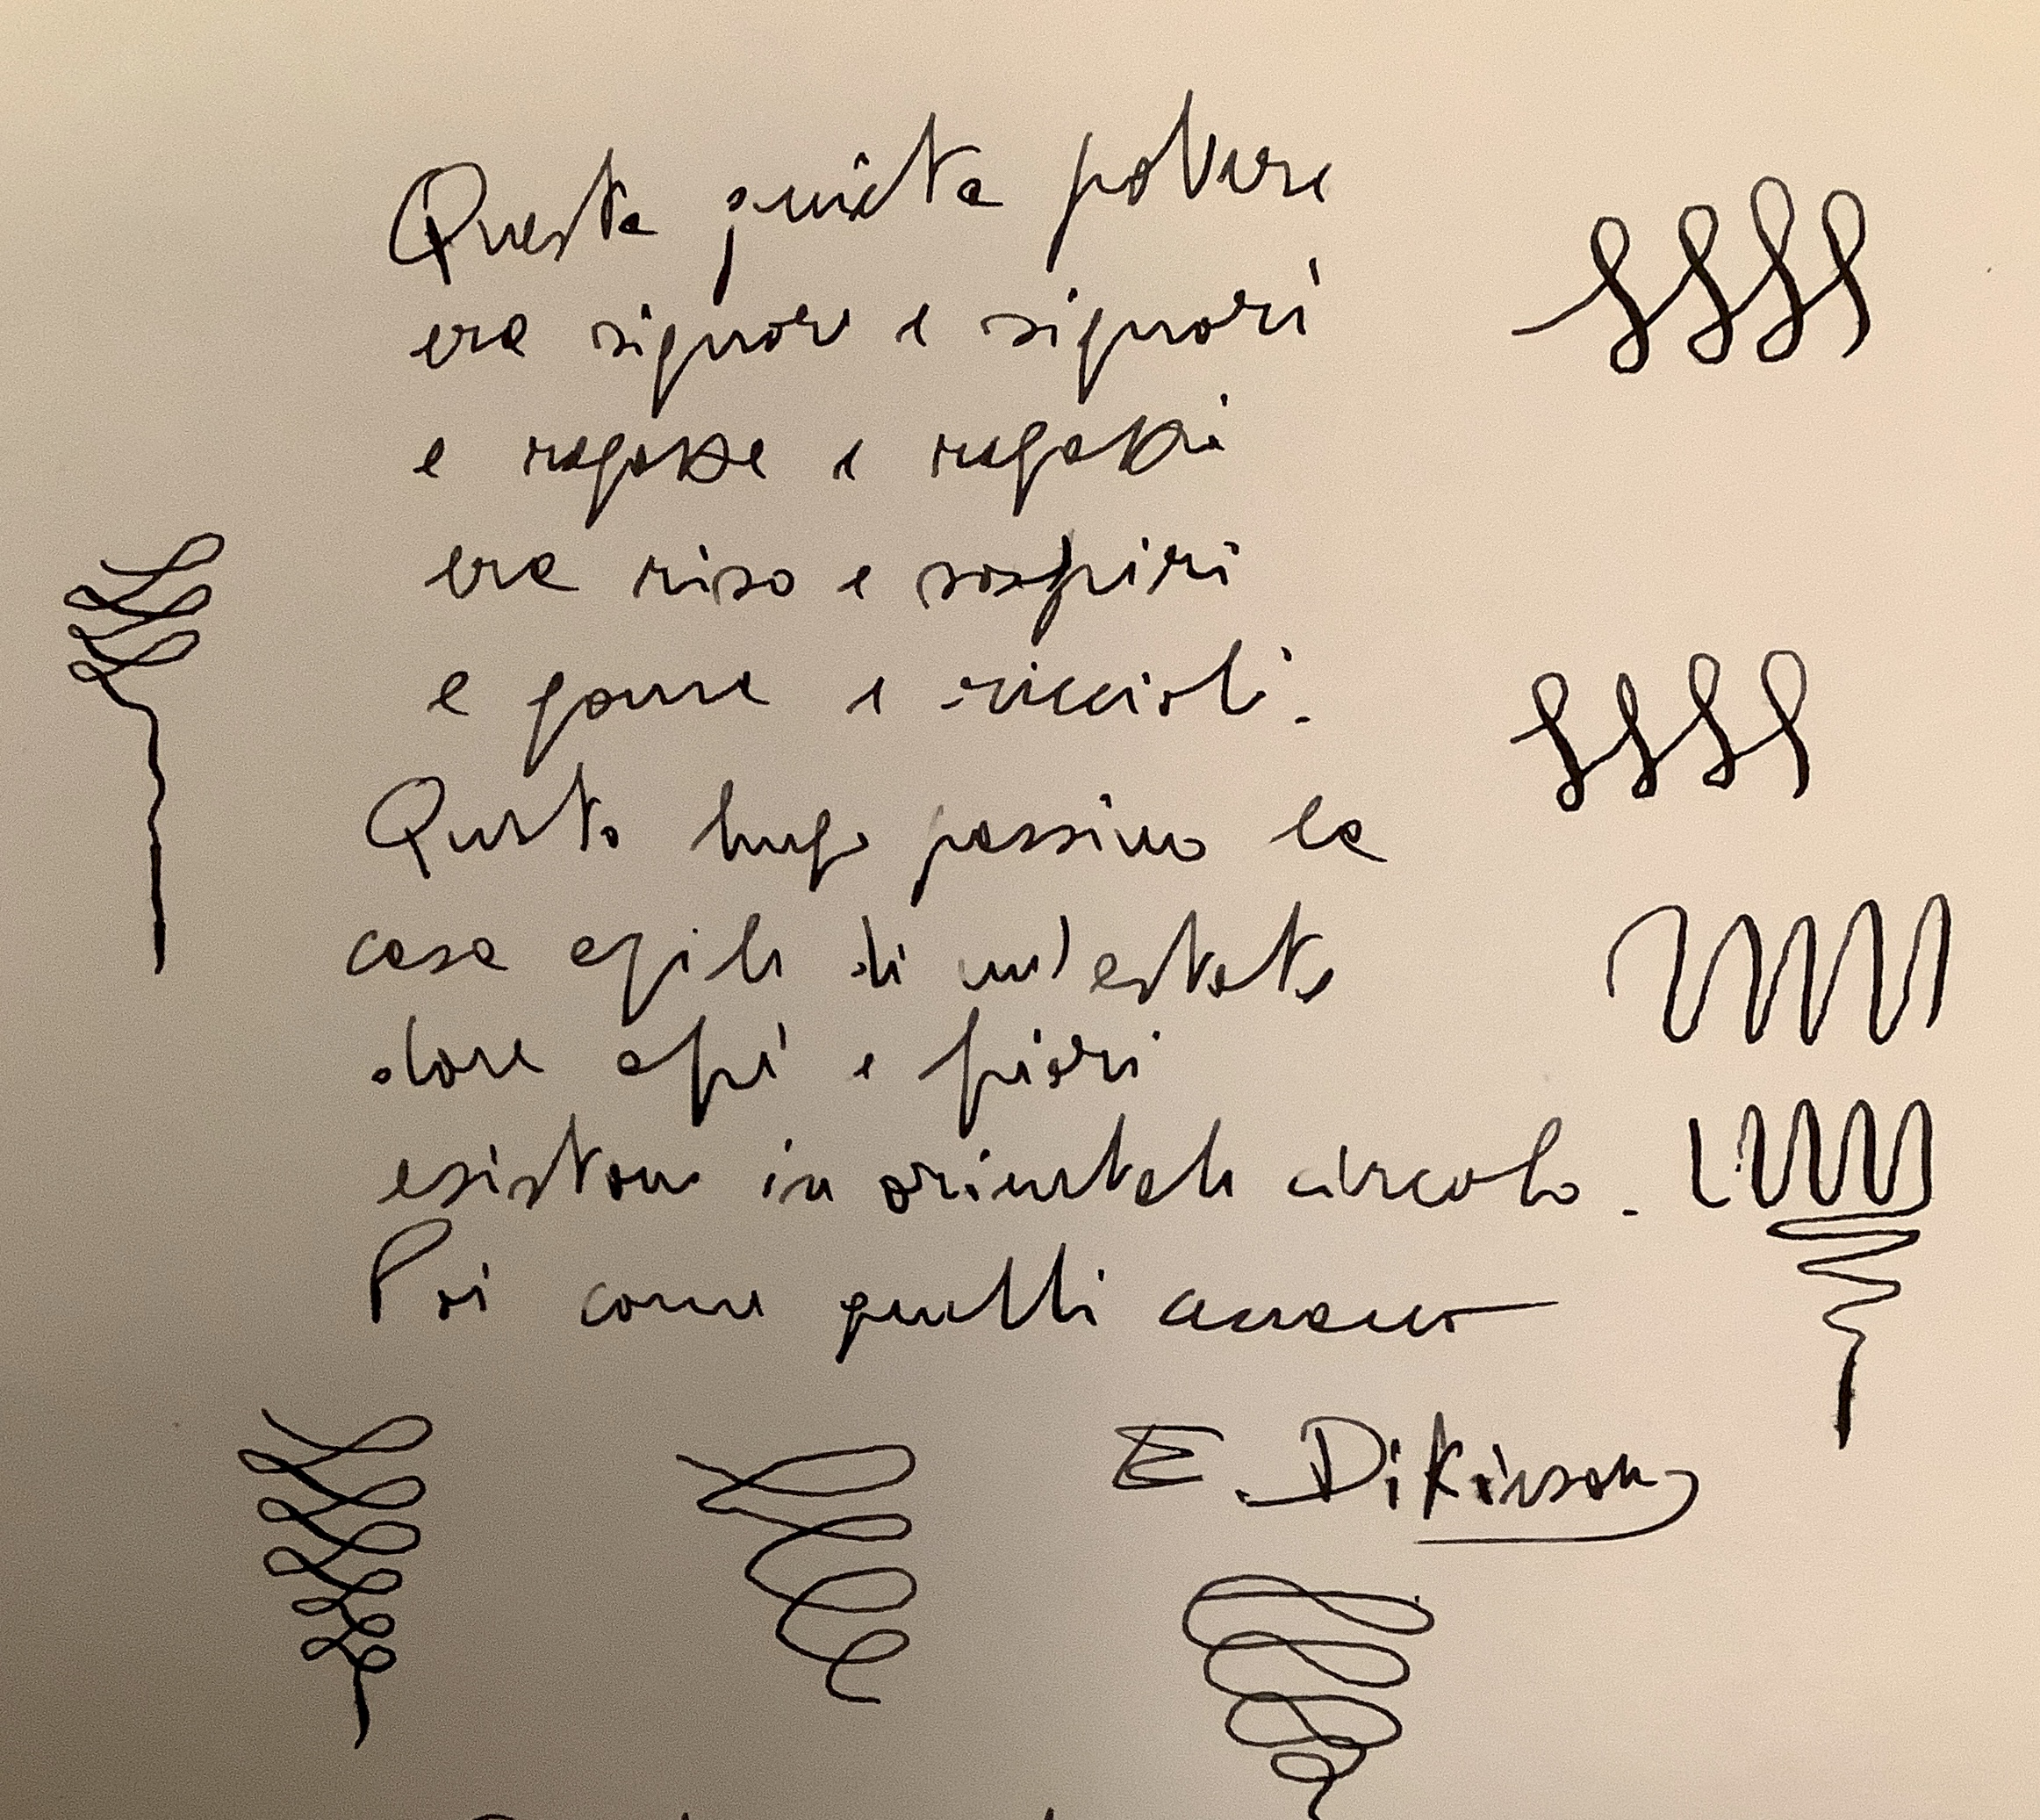 Questa quieta polvere
era signore e signori
e ragazze e ragazzi
era riso e sospiri
e gonne e riccioli.
Questo luogo passivo la
casa agile di un'estate
dove api e fiori
esistono in orientale circolo.
Poi come quelli cessano
E. Dikinson